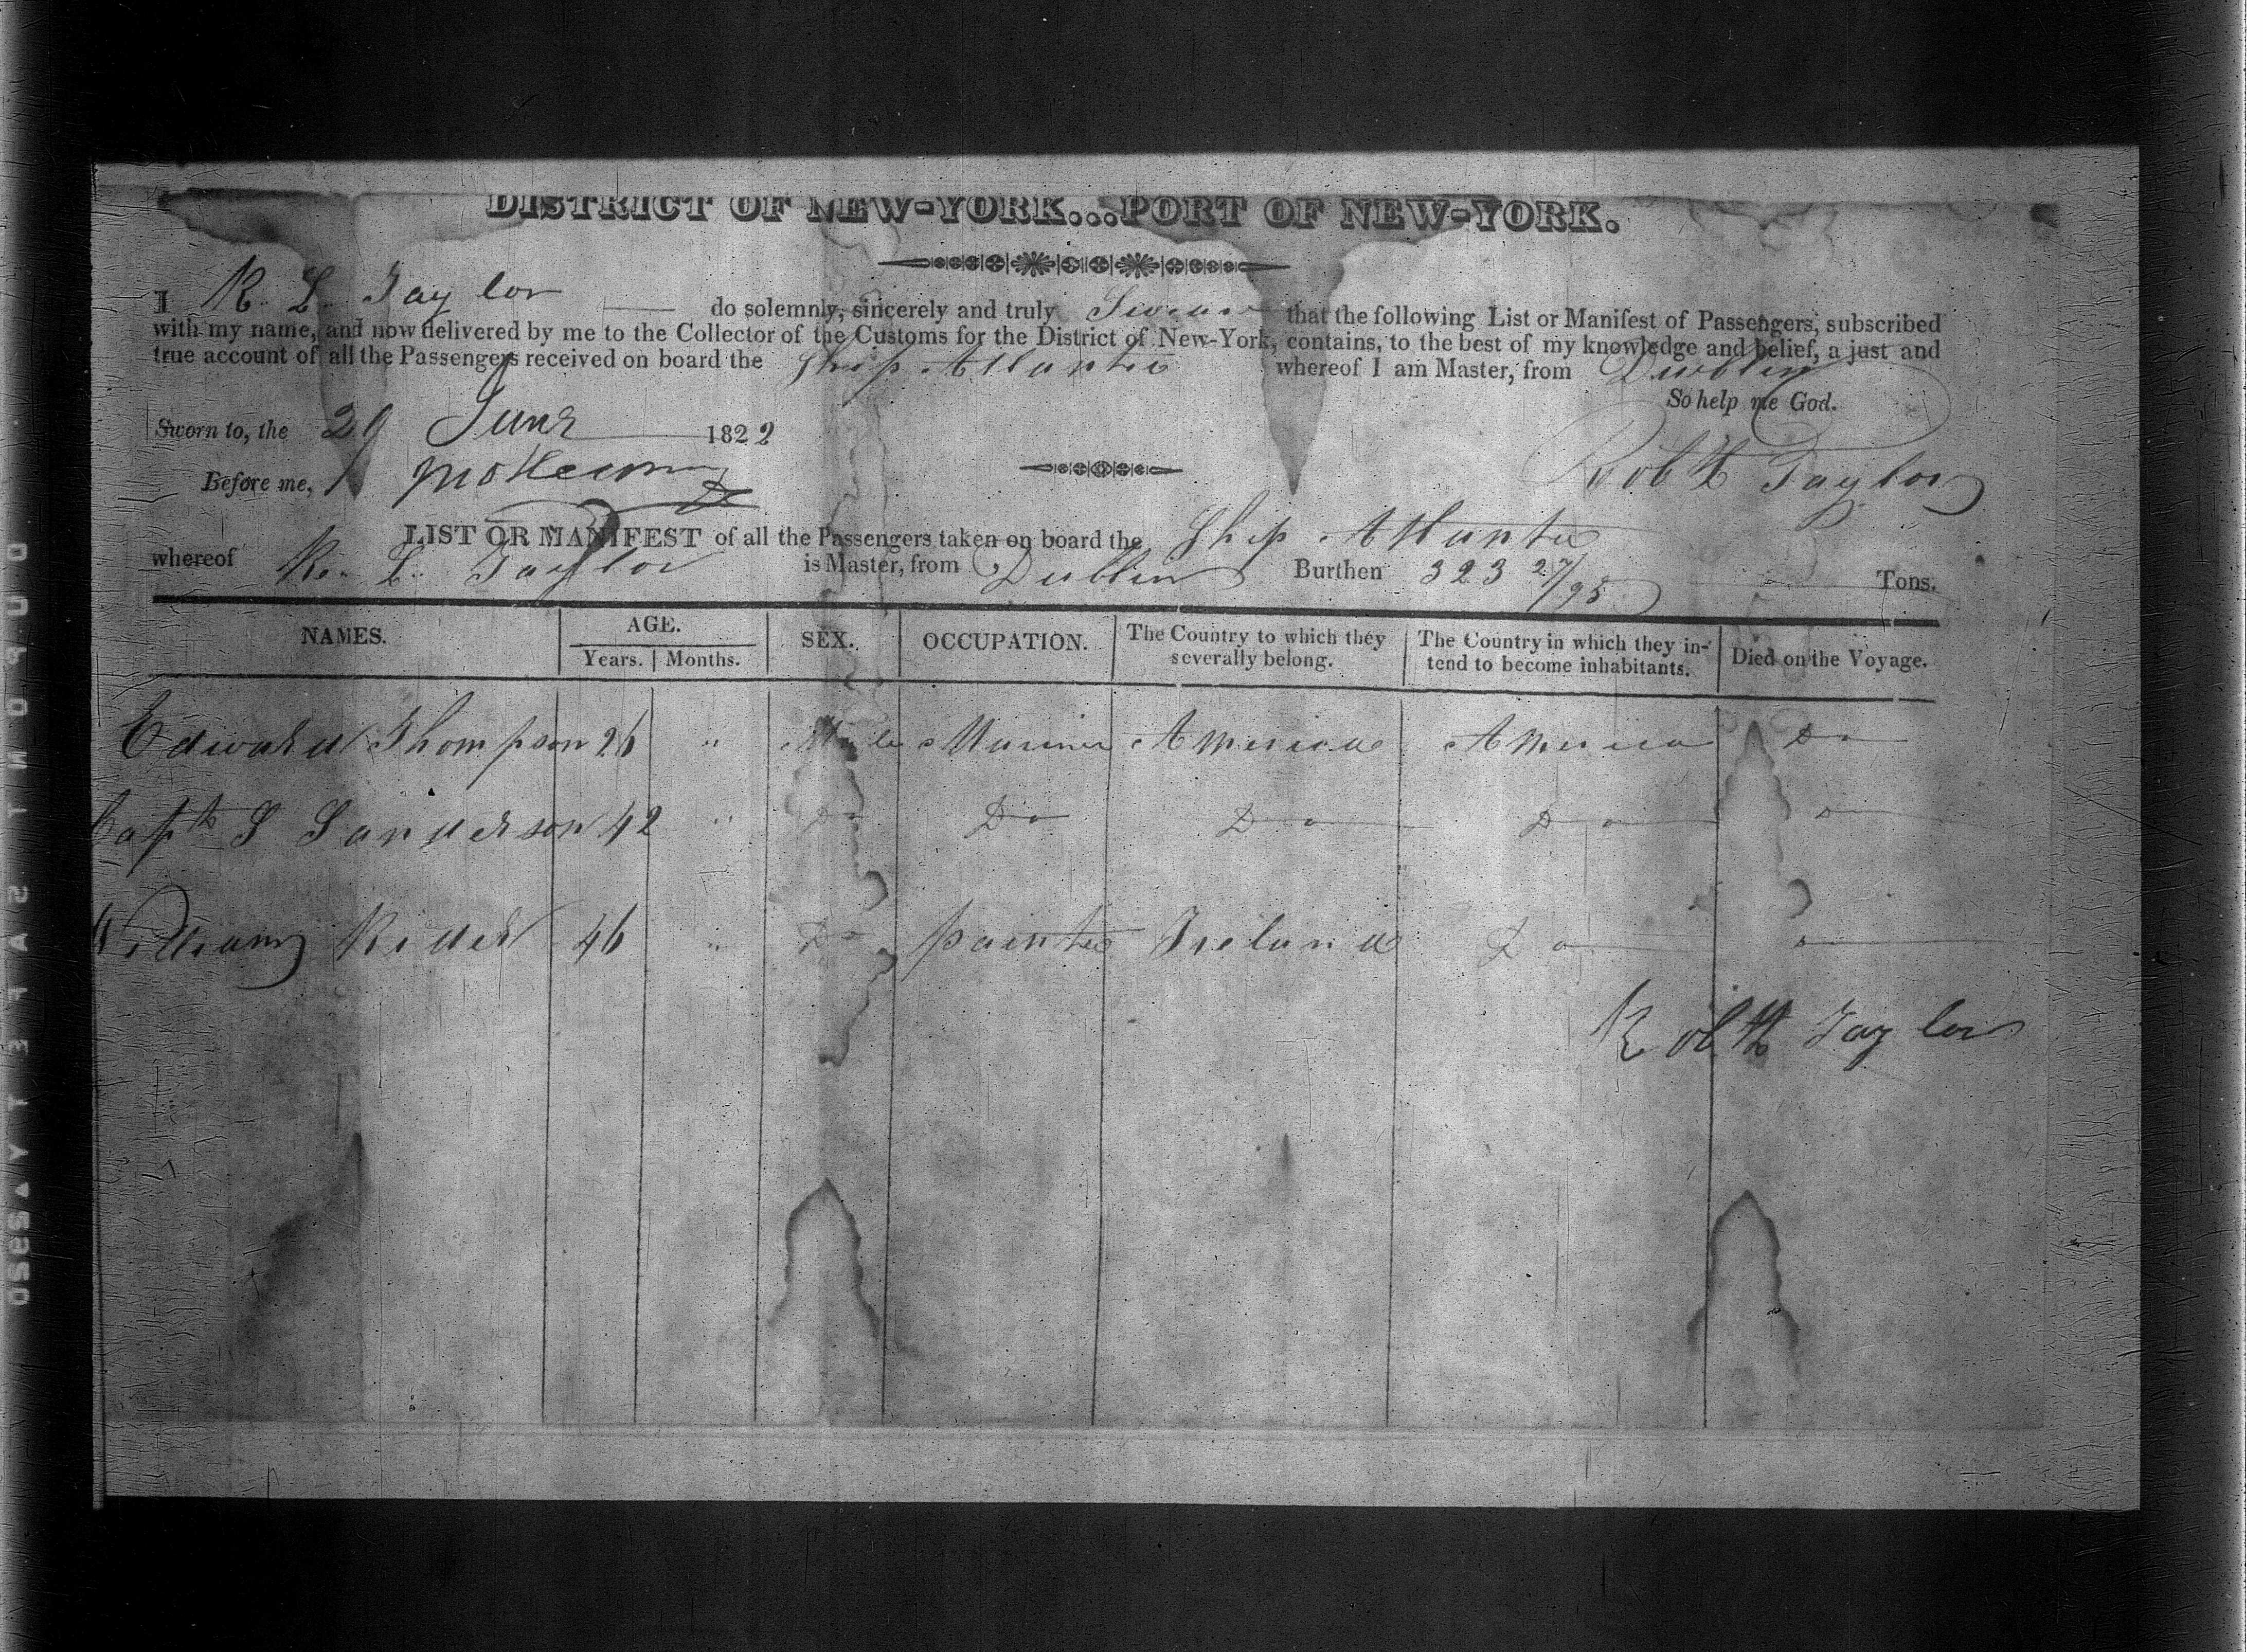 DISTRICT OF NEW-YORK...PORT OF NEW-YORK.
I R. L. Taylor do solemnly, sincerely and truly Swear that the following List or Manifest of Passengers, subscribed
with my name, and now delivered by me to the Collector of the Customs for the District of New-York, contains, to the best of my knowledge and belief, a just and
true account of all the Passengers received on board the Ship Atlantic whereof I am Master, from Dublin
So help me God.
Sworn to, the 29 June 1822
Before me, Robt L Taylor
LIST OR MANIFEST of all the Passengers taken on board the Ship Atlantic
whereof R. L. Taylor is Master, from Dublin Burthen 323 27/95 Tons.
NAMES. AGE. SEX. OCCUPATION. The Country to which they severally belong. The Country in which they intend to become inhabitants. Died on the Voyage.
Years. Months.
Edward Thompson 26 " Male Mariner America America Do
Capt S Sanderson 42 " Do Do Do Do o
William Rider 46 " Do painter Ireland Do o
Robt L Taylor